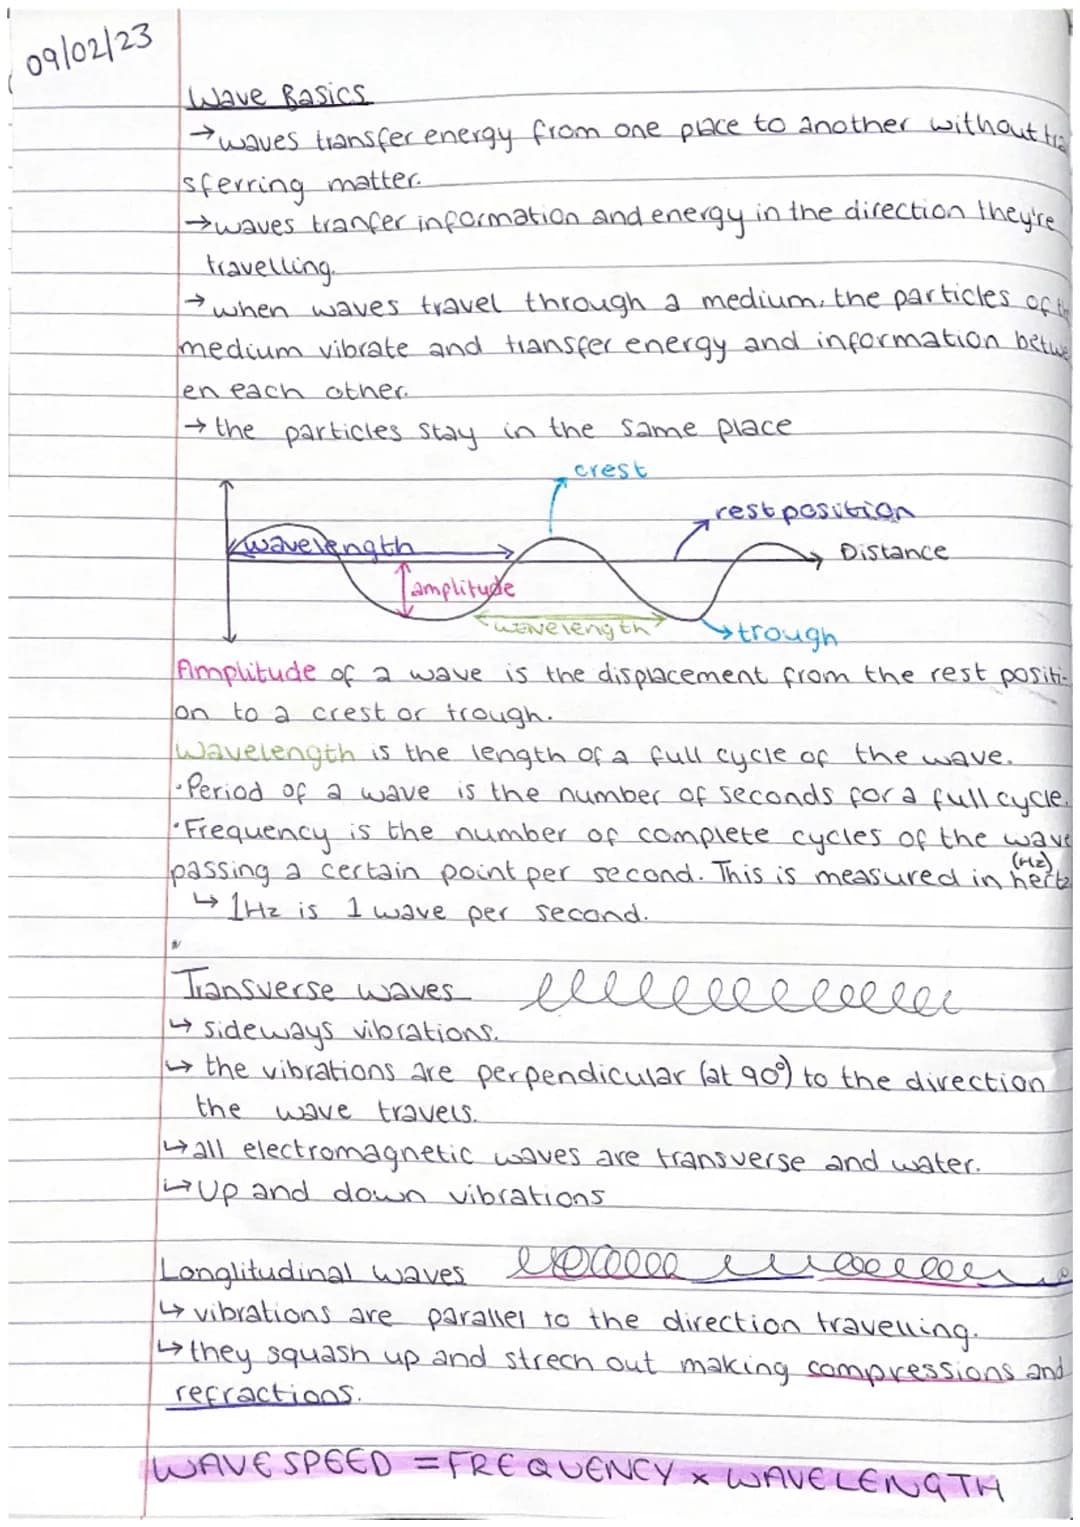 09/02/23
Wave Basics
→ waves transfer energy from one place to another without tra
sferring matter.
→ waves tranfer information and energy in the direction they're
travelling.
→ when waves travel through a medium, the particles of th
medium vibrate and transfer energy and information betwe
en each other.
→ the particles stay in the same place
crest
rest position
wavelength
Distance
amplitude
wavelength
trough
Amplitude of a wave is the displacement from the rest positi-
on to a crest or trough.
Wavelength is the length of a full cycle of the wave.
·Period of a wave is the number of seconds for a full cycle.
·Frequency is the number of complete cycles of the wave
(Hz)
passing a certain point per second. This is measured in hertz
↳ 1Hz is 1 wave per second.
Transverse waves
↳ sideways vibrations.
↳ the vibrations are perpendicular (at 90°) to the direction
the wave travels.
↳ all electromagnetic waves are transverse and water.
↳ Up and down vibrations
Longlitudinal waves
↳ vibrations are parallel to the direction travelling.
↳ they squash up and strech out making compressions and
refractions.
WAVE SPEED = FREQUENCY x WAVELENGTH